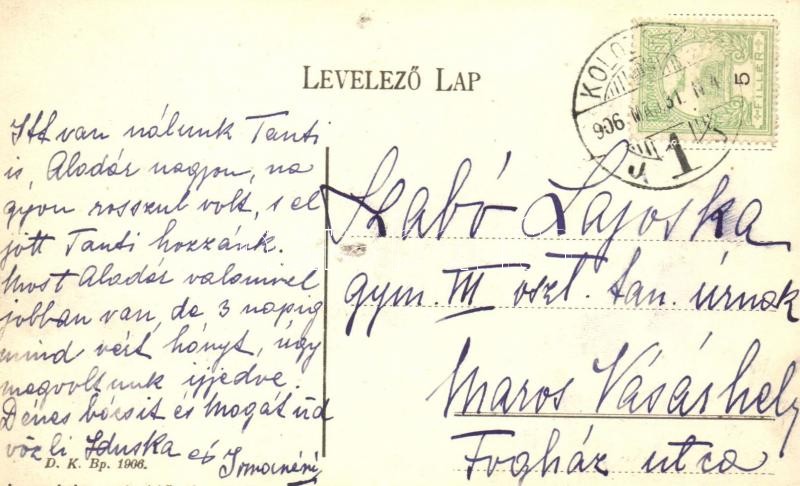 LEVELEZŐ LAP
KOLOZ
906 MÁJ. 31. N 4
J 1
5
FILLÉR
Itt van nálunk Tanti
is, Aladár nagyon, na
gyon rosszul volt, s el
jött Tanti hozzánk.
Most Aladár valamivel
jobban van, de 3 napig
mind vért hányt, úgy
megvoltunk ijjedve.
Dénes bácsit és Magát üd
vözli Iduska és Irmanéni
D. K. Bp. 1906.
Szabó Lajoska
gym. III oszt. tan. úrnak
Maros Vásárhely
Fogház utca